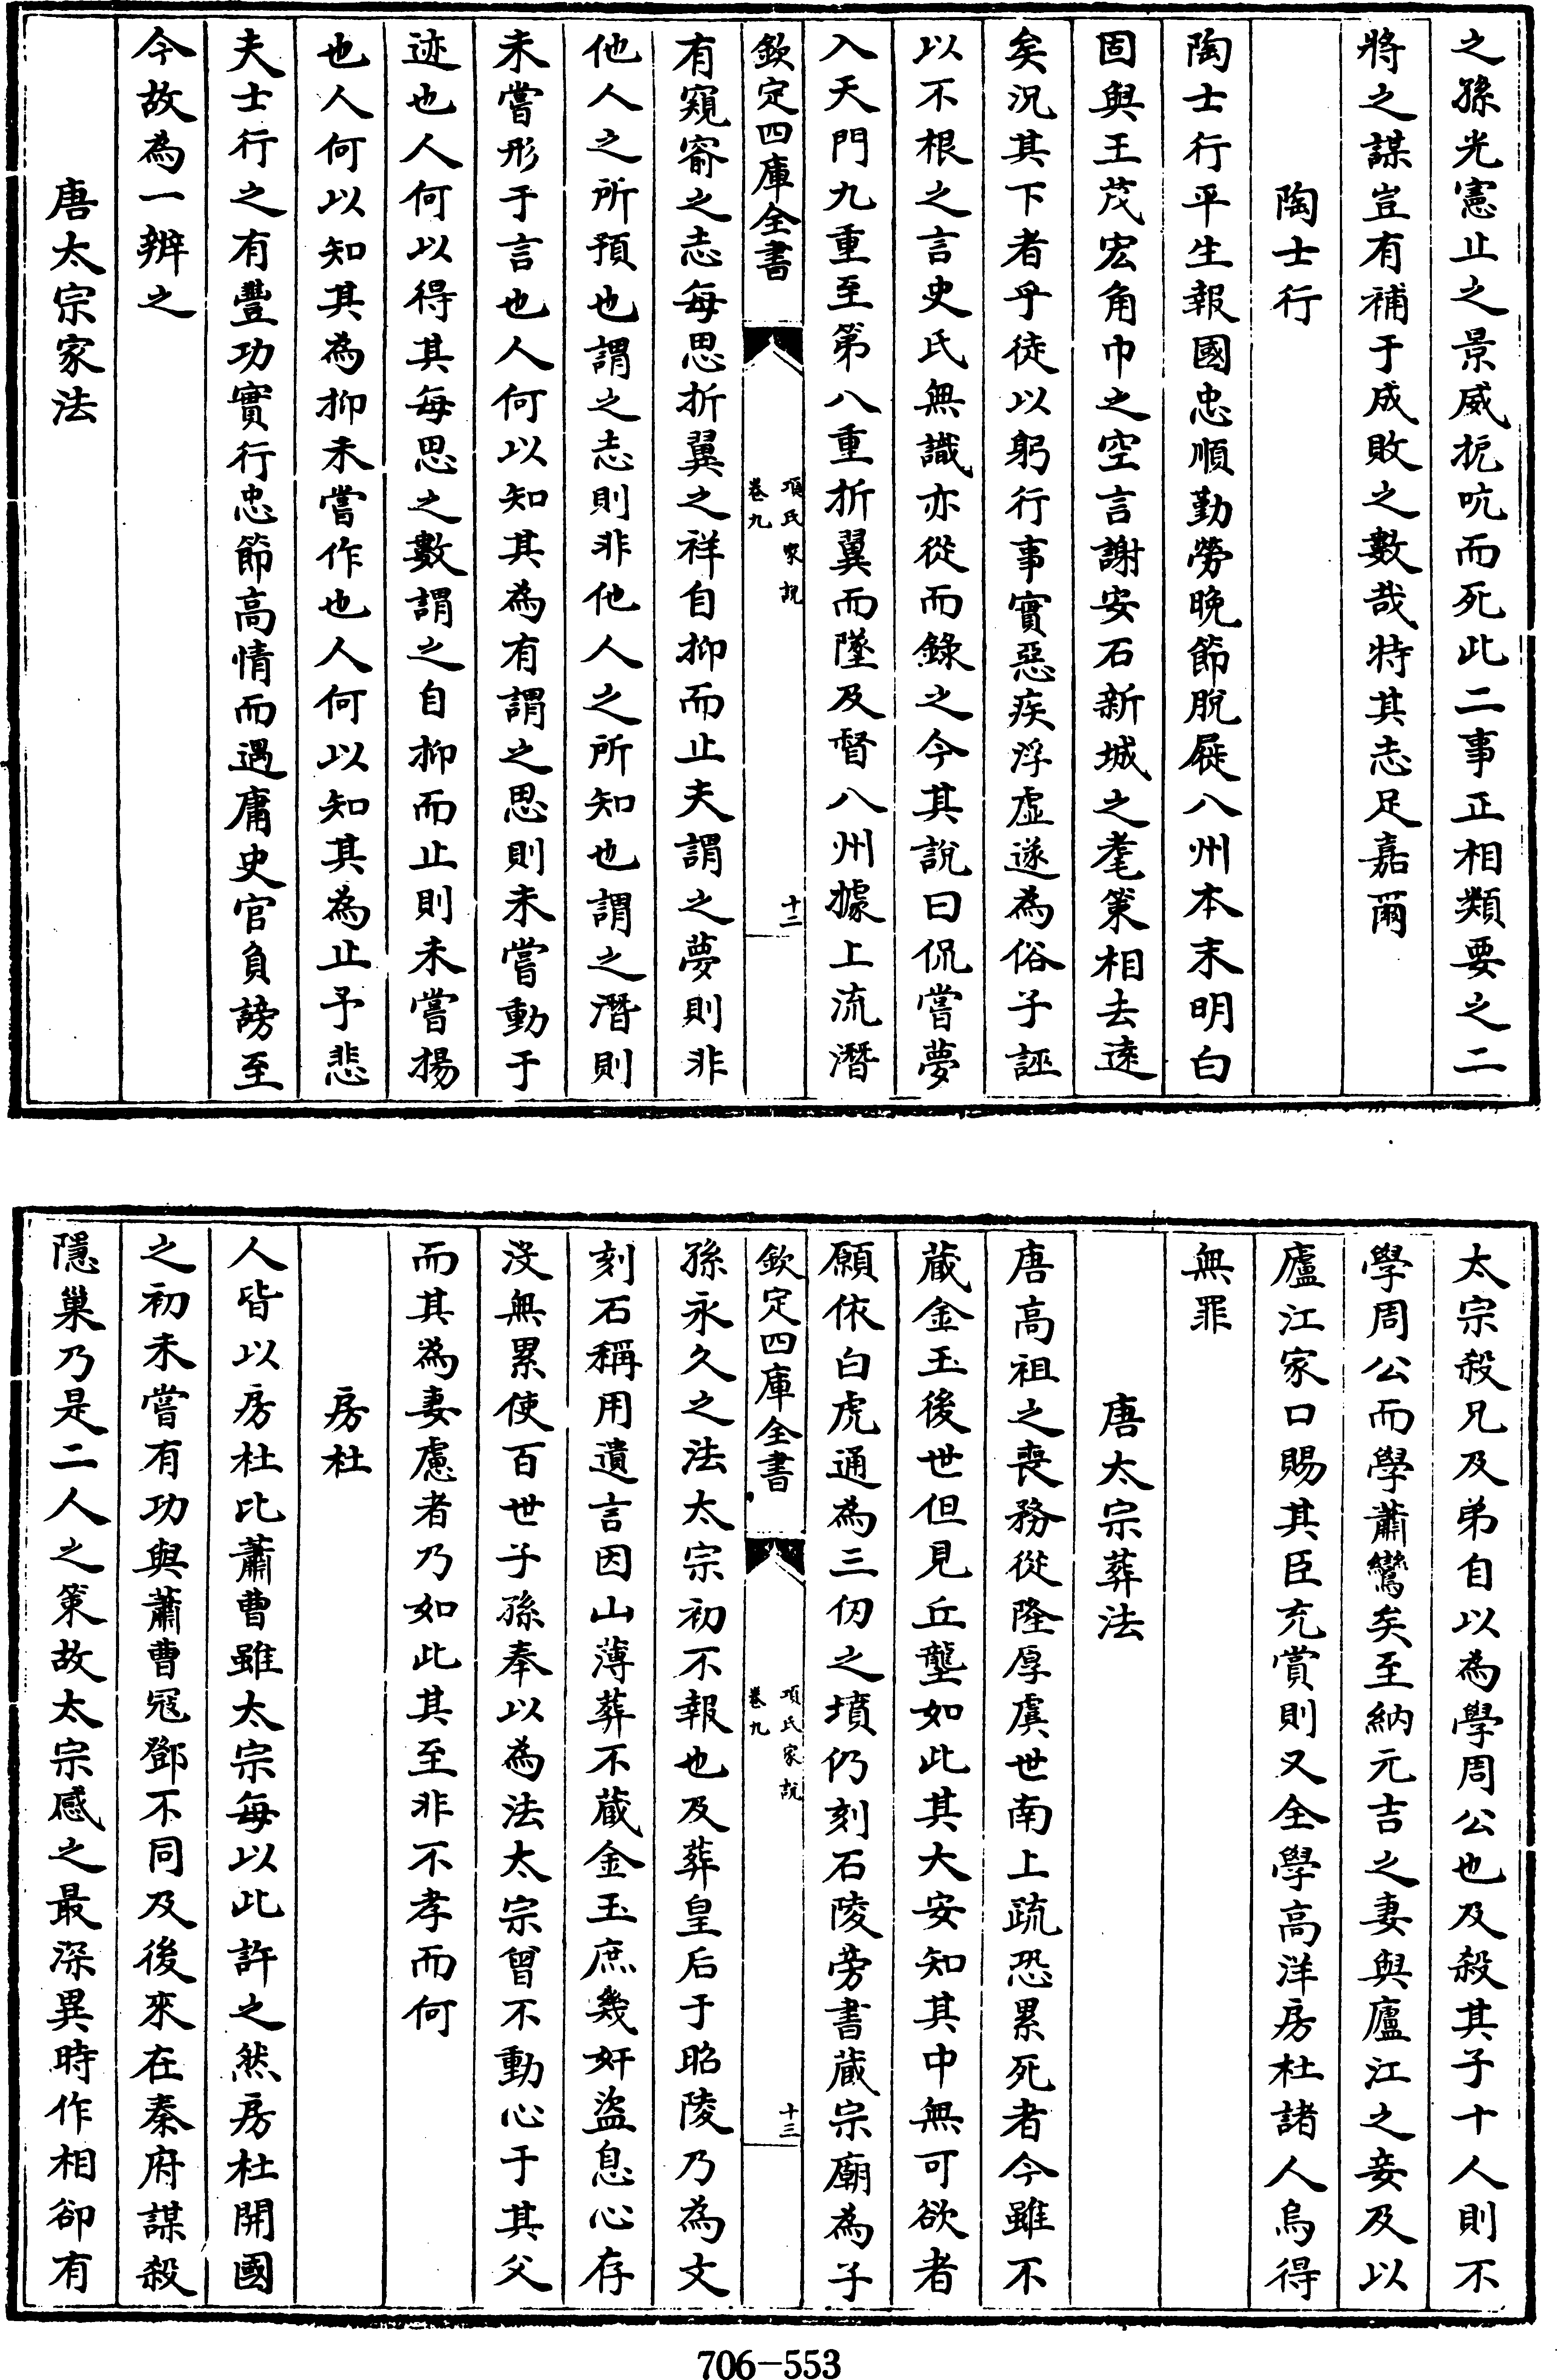 之孫光憲止之景威扼吭而死此二事正相類要之二
將之謀豈有補于成敗之數哉特其志足嘉爾
陶士行
陶士行平生報國忠順勤勞晚節脫屣八州本末明白
固與王茂宏角巾之空言謝安石新城之耄策相去遠
矣況其下者乎徒以躬行事實惡疾浮虛遂為俗子誣
以不根之言史氏無識亦從而錄之今其說曰侃嘗夢
入天門九重至第八重折翼而墜及督八州據上流潛
欽定四庫全書
項氏家說
卷九
十二
有窺窬之志每思折翼之祥自抑而止夫謂之夢則非
他人之所預也謂之志則非他人之所知也謂之潛則
未嘗形于言也人何以知其為有謂之思則未嘗動于
迹也人何以得其每思之數謂之自抑而止則未嘗揚
也人何以知其為抑未嘗作也人何以知其為止予悲
夫士行之有豐功實行忠節高情而遇庸史官負謗至
今故為一辨之
唐太宗家法
太宗殺兄及弟自以為學周公也及殺其子十人則不
學周公而學蕭鸞矣至納元吉之妻與廬江之妾及以
廬江家口賜其臣充賞則又全學高洋房杜諸人烏得
無罪
唐太宗葬法
唐高祖之喪務從隆厚虞世南上疏恐累死者今雖不
藏金玉後世但見丘壟如此其大安知其中無可欲者
願依白虎通為三仞之墳仍刻石陵旁書藏宗廟為子
欽定四庫全書
項氏家說
卷九
十三
孫永久之法太宗初不報也及葬皇后于昭陵乃為文
刻石稱用遺言因山薄葬不藏金玉庶幾奸盜息心存
沒無累使百世子孫奉以為法太宗曾不動心于其父
而其為妻慮者乃如此其至非不孝而何
房杜
人皆以房杜比蕭曹雖太宗每以此許之然房杜開國
之初未嘗有功與蕭曹冦鄧不同及後來在秦府謀殺
隱巢乃是二人之策故太宗感之最深異時作相卻有
706-553